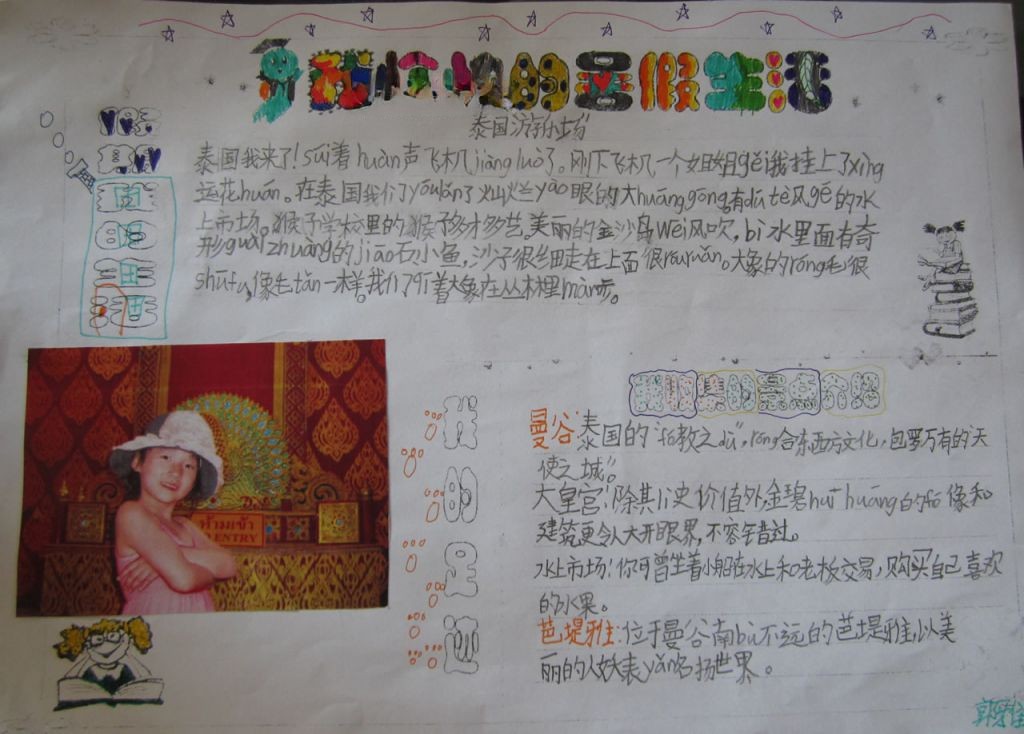 我愉快的暑假生活
泰国游乐场
泰国我来了!Suí着huān声飞机jiàngluò了。刚下飞机一个姐姐gěi我挂上了xìng
运花huán。在泰国我们yóulǎn了灿烂yào眼的大huánggōng。有dú tè风gé的水
上市场。猴子学校里的猴子多才多艺。美丽的金沙岛wēi风吹,bì水里面有奇
形guàizhuàng的jiāo石小鱼,沙子很细走在上面很róuruǎn。大象的róng毛很
shūfu,像毛tǎn一样。我们乃至着大象在丛林里màn步。
景点介绍
曼谷:泰国的“佛教之dū”,róng合东西方文化,包罗万有的“天
使之城”。
大皇宫:除其历史价值外,金碧huī huáng的佛像和
建筑更令人大开眼界,不容错过。
水上市场:你可曾坐着小船在水上和老板交易,购买自己喜欢
的水果。
芭堤雅:位于曼谷南bù不远的芭堤雅,以美
丽的人妖表yǎn名扬世界。
我
的
足
迹
ห้ามเข้า
NO ENTRY